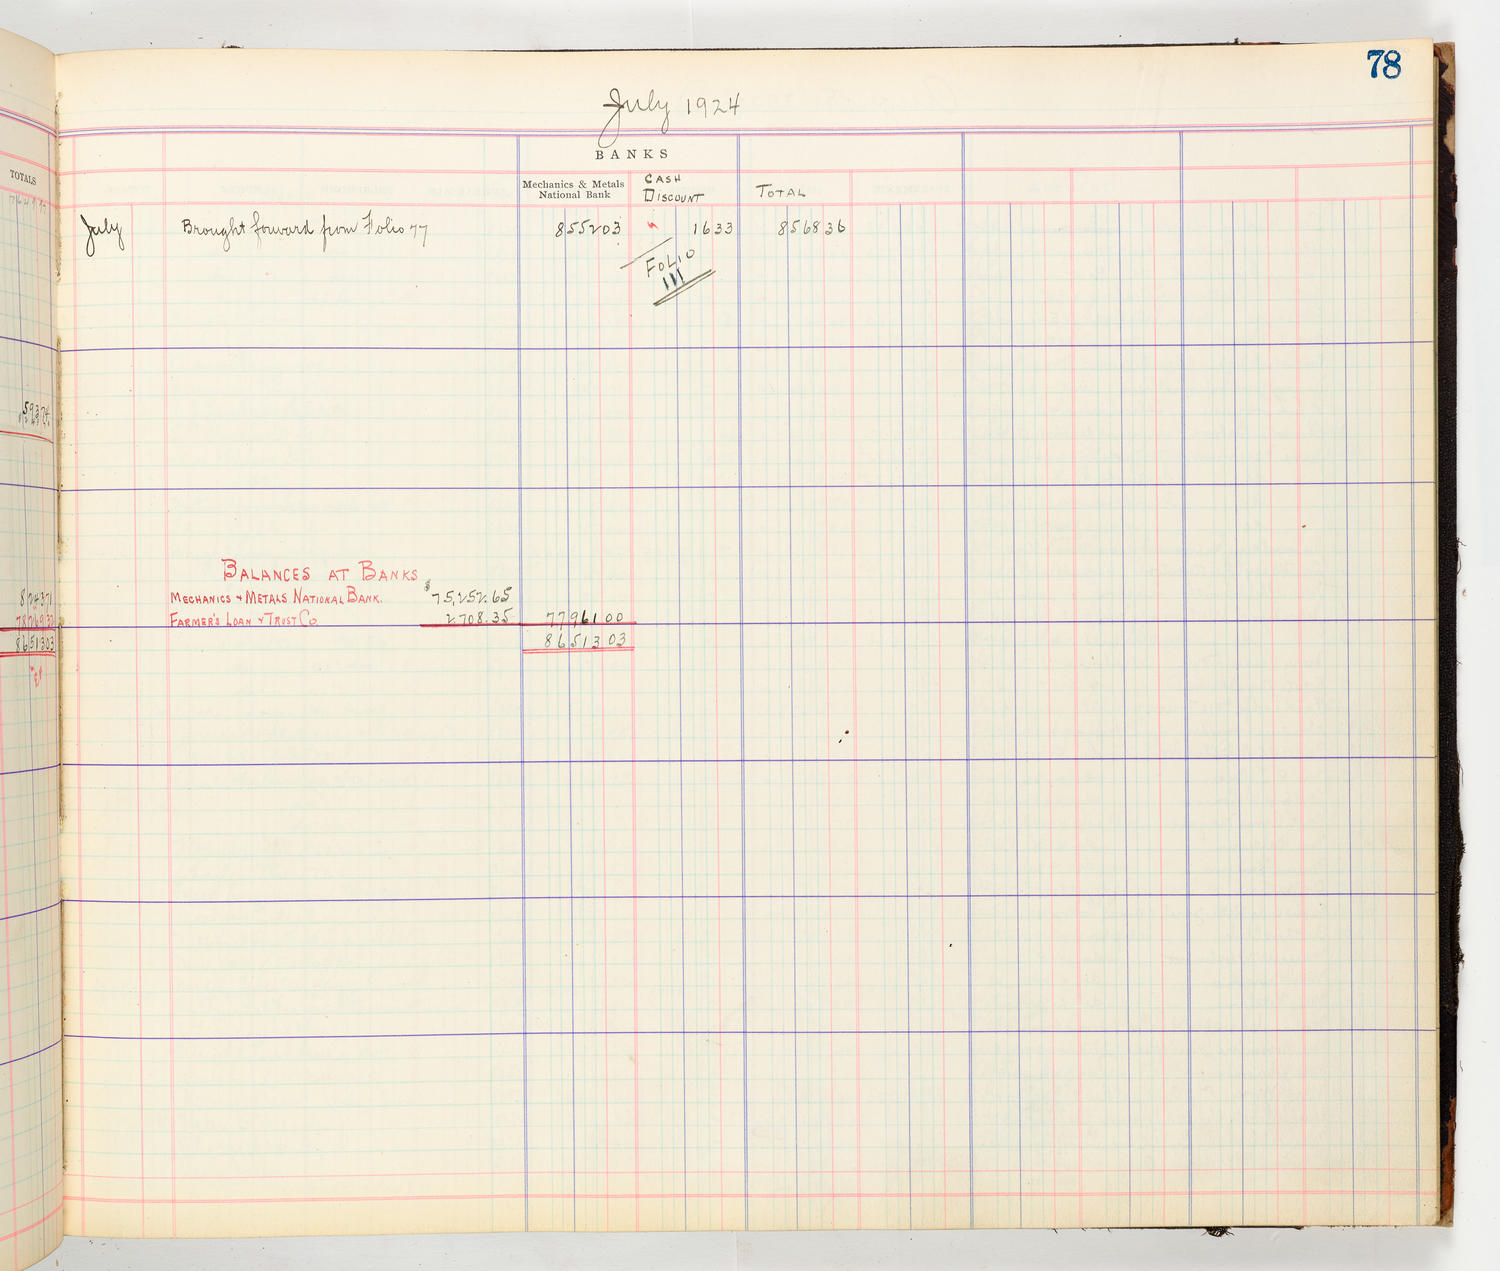 78
July 1924
TOTALS
BANKS
Mechanics & Metals National Bank
CASH DISCOUNT
TOTAL
July Brought forward from Folio 77 855203 1633 856836
FOLIO
111
5937
BALANCES AT BANKS
82437 1 MECHANICS & METALS NATIONAL BANK. $75,252.65
FARMER'S LOAN & TRUST CO 2708.35 7796100
8651303 8651303